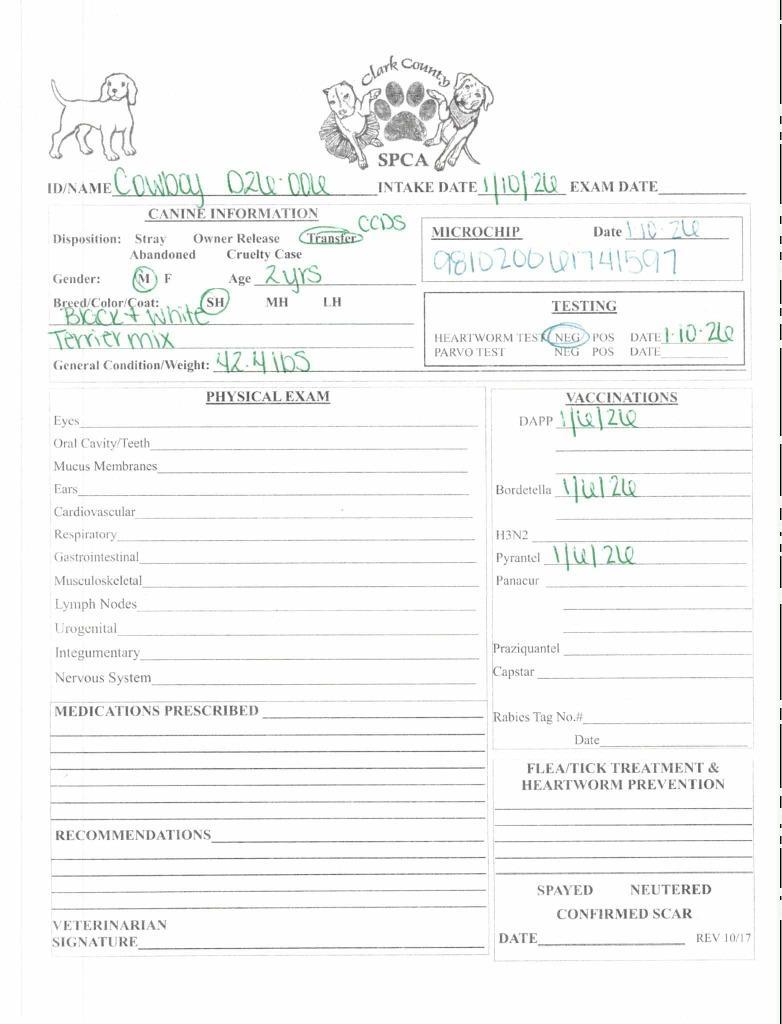 Clark County
SPCA
ID/NAME Cowboy D26-006 INTAKE DATE 1/10/26 EXAM DATE
CANINE INFORMATION
Disposition: Stray Owner Release Transfer CCDS
Abandoned Cruelty Case
Gender: M F Age 2yrs
Breed/Color/Coat: SH MH LH
Black + White
Terrier mix
General Condition/Weight: 42.4 lbs
MICROCHIP Date 1-10-26
TESTING
HEARTWORM TEST NEG POS DATE 1-10-26
PARVO TEST NEG POS DATE
PHYSICAL EXAM
Eyes
Oral Cavity/Teeth
Mucus Membranes
Ears
Cardiovascular
Respiratory
Gastrointestinal
Musculoskeletal
Lymph Nodes
Urogenital
Integumentary
Nervous System
MEDICATIONS PRESCRIBED
RECOMMENDATIONS
VETERINARIAN
SIGNATURE
VACCINATIONS
DAPP 1/6/26
Bordetella 1/6/26
H3N2
Pyrantel 1/6/26
Panacur
Praziquantel
Capstar
Rabies Tag No.#
Date
FLEA/TICK TREATMENT &
HEARTWORM PREVENTION
SPAYED NEUTERED
CONFIRMED SCAR
DATE REV 10/17